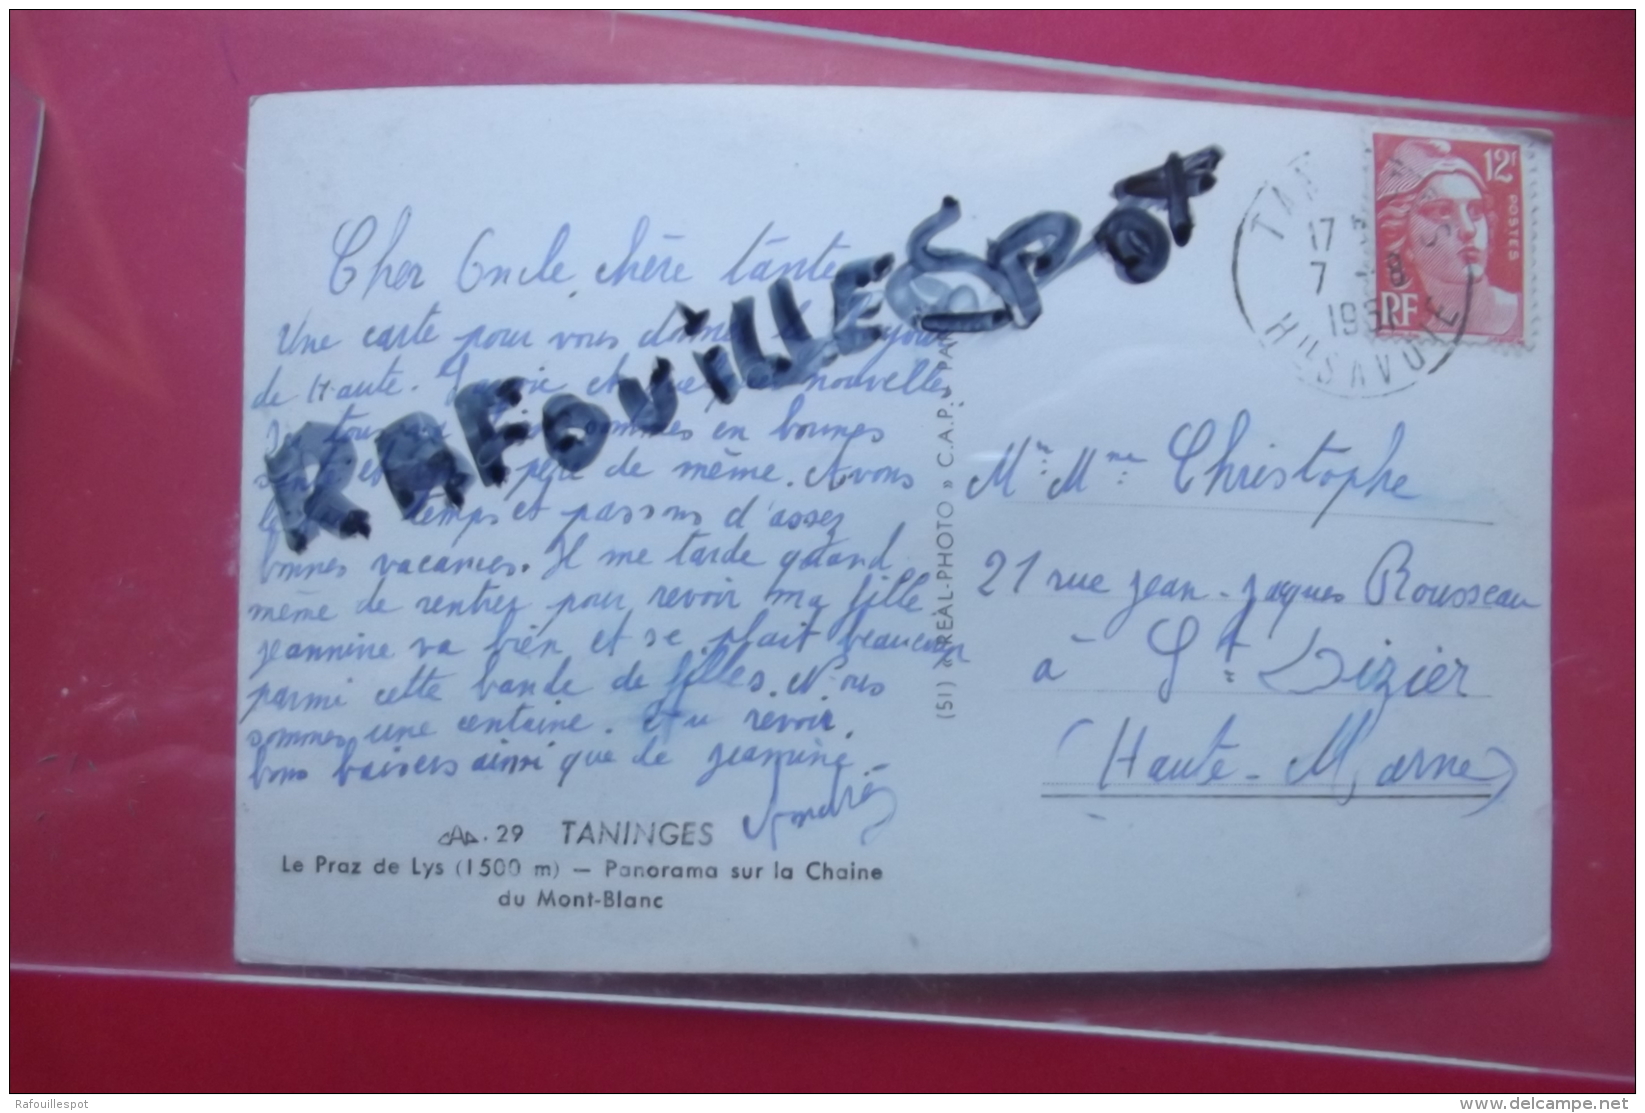 Cher Oncle, chère tante
Une carte pour vous donner
de Haute-Savoie et nouvelles
en bonnes
de même. Avons
temps et passons d'assez
bonnes vacances. Il me tarde quand
même de rentrer pour revoir ma fille
Jeannine va bien et se plait beaucoup
parmi cette bande de filles. Nous
sommes une centaine. Au revoir,
bons baisers ainsi que de Jeannine.
André
29 TANINGES
Le Praz de Lys (1500 m) — Panorama sur la Chaine
du Mont-Blanc
RAFOUILLESPOT
(51) « REAL-PHOTO » C.A.P. PAR
12F
POSTES
RF
TAN
17
7 8
1951
Hte SAVOIE
Mr Mme Christophe
21 rue Jean-Jaques Rousseau
à St Dizier
(Haute-Marne)
Rafouillespot
delcampe.net